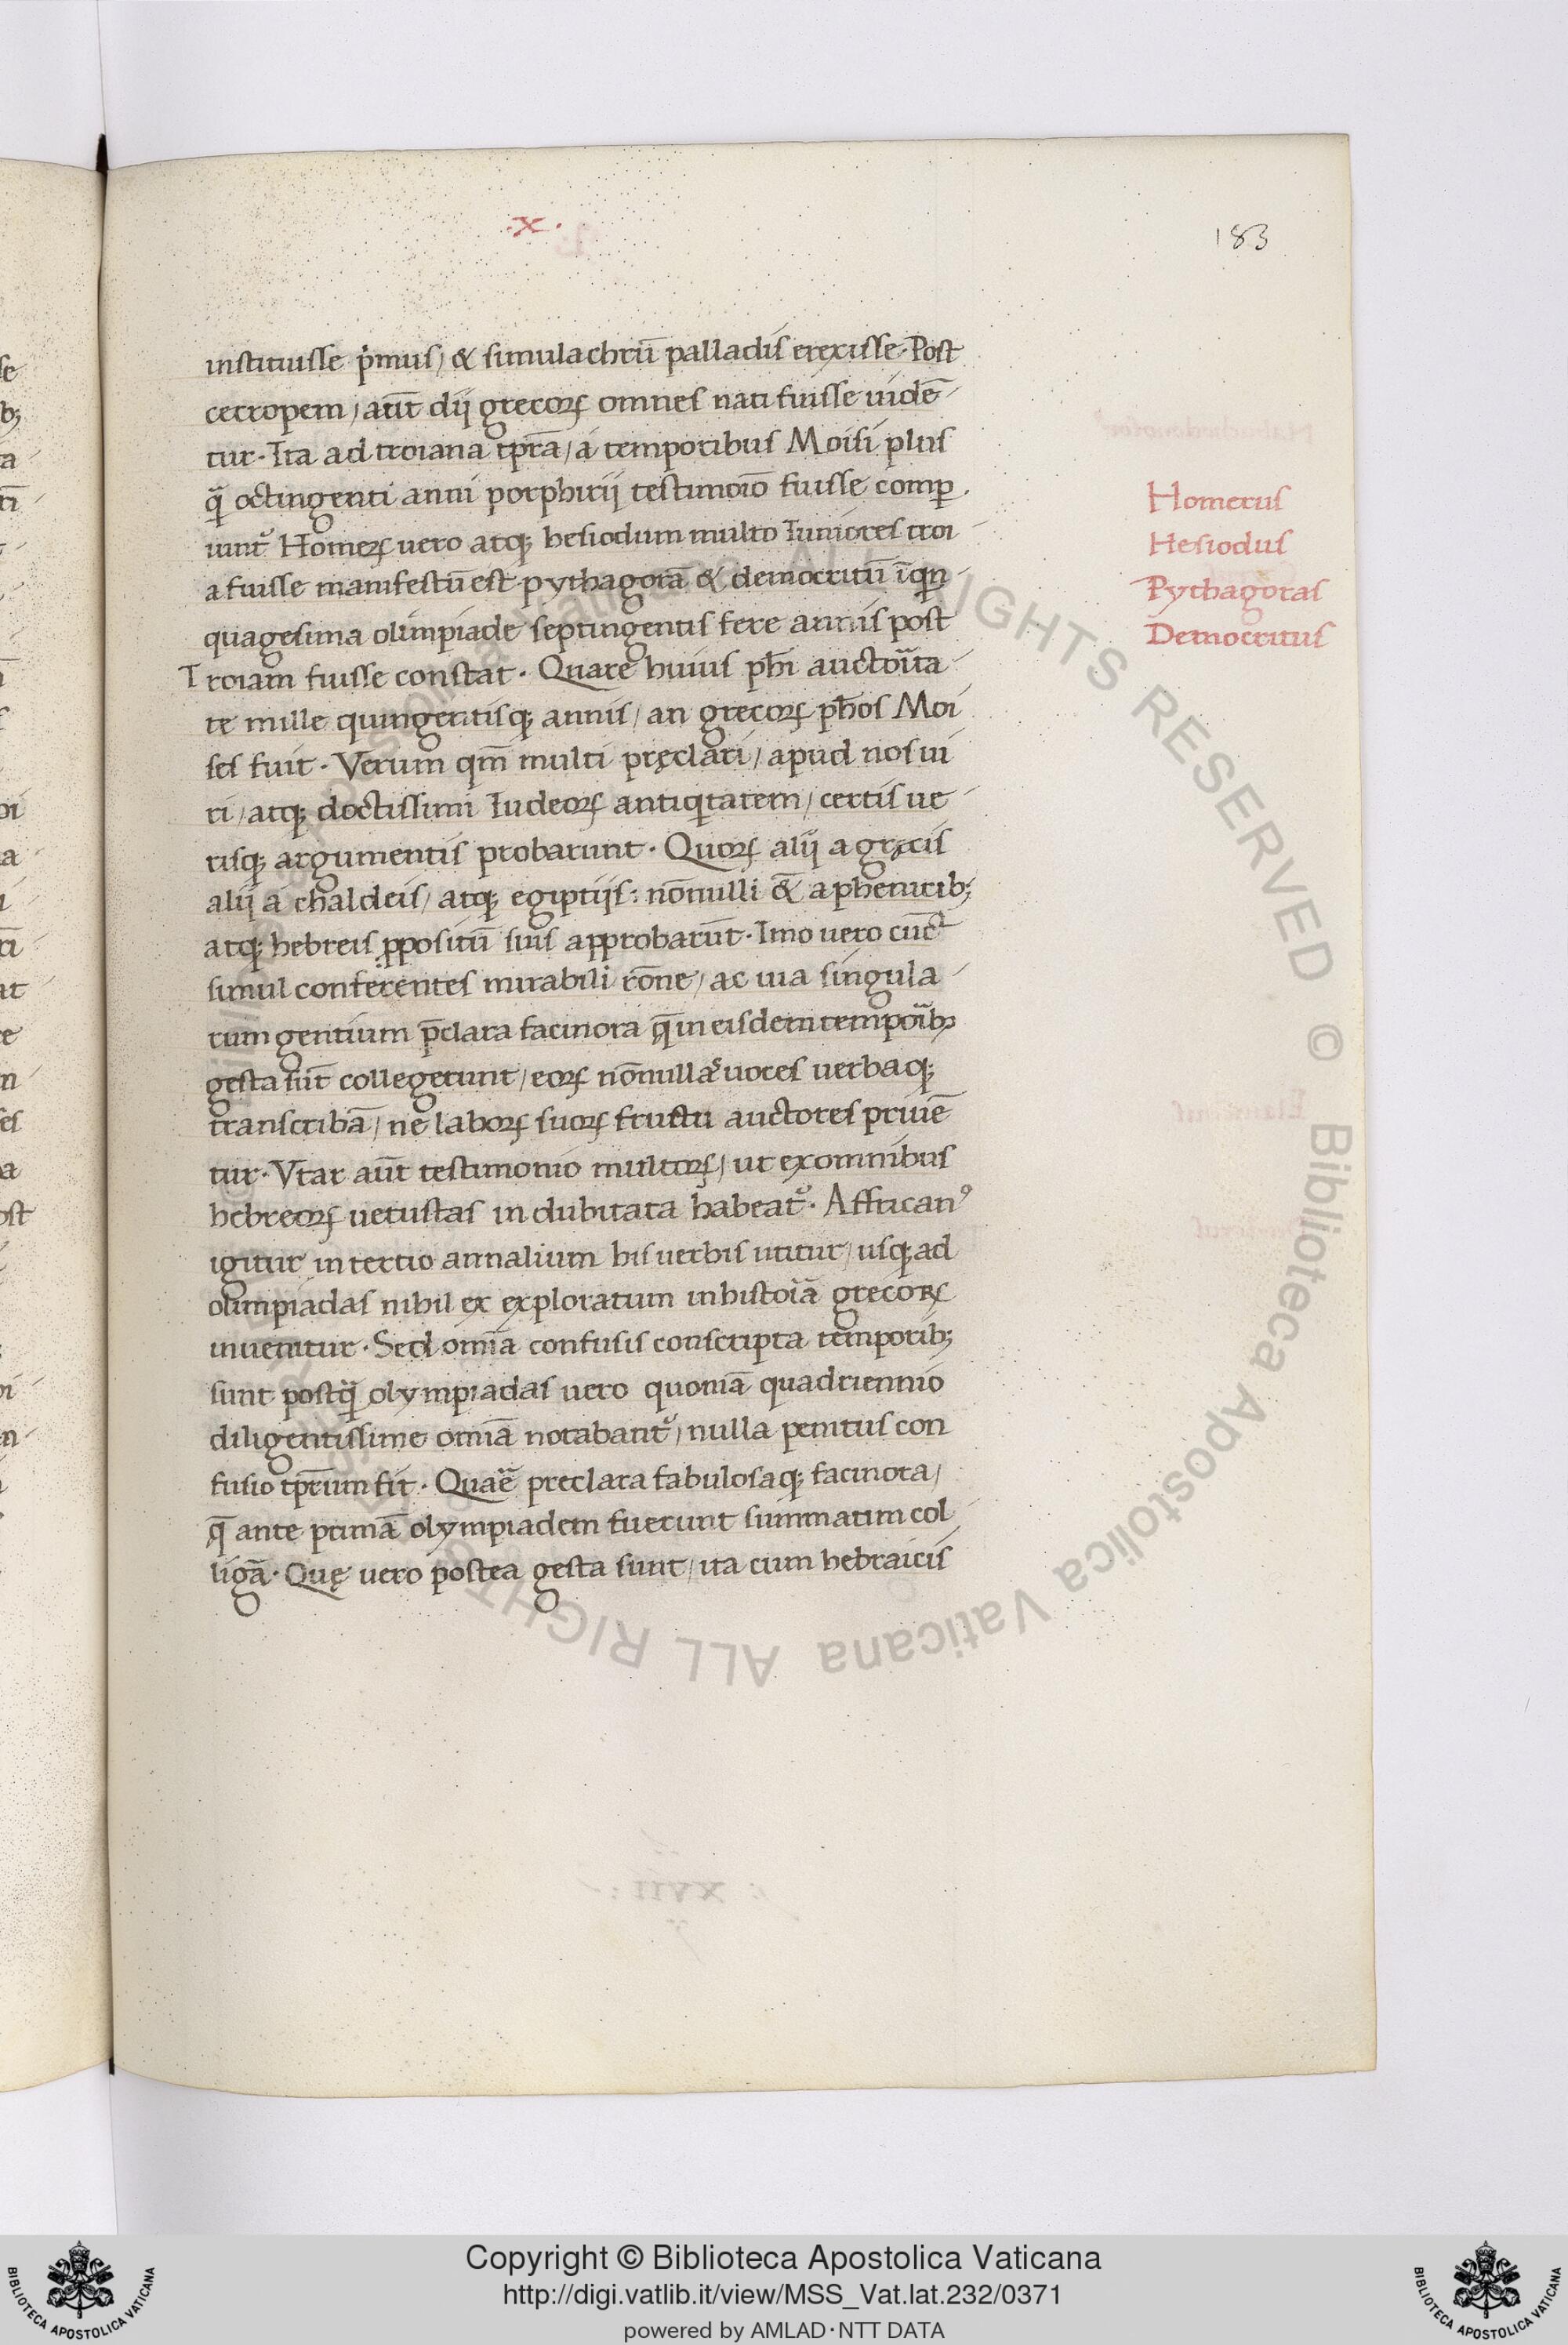 .x.
183
instituisse p̍mus / & simulachrū palladis erexisse. Post
cecropem / aūt dij grecoꝝ omnes nati fuisse uidē
tur. Ita ad troiana tp̄ra / a temporibus Moisi plus
q̄ octingenti anni porphirij testimoīo fuisse comp
iunt᷑ Homeꝝ uero atq; hesiodum multo Iuniores troi
a fuisse manifestū est pythagorā & democritū ī qn̄
quagesima olimpiade septingentis fere annis post
Troiam fuisse constat. Quare huius ph̄i auctoıͣta
te mille quingentisq; annis / an grecoꝝ ph̄os Moi
ses fuit. Verum qm̄ multi pręclari / apud nos ui
ri / atq; doctissimi Iudeoꝝ antiqͥtatem / certis ue
risq; argumentis probarunt. Quoꝝ alij a gręcis
alij a chaldeis / atq; egiptijs: nōnulli &̄ a phenicib;
atq; hebreis ꝓpositū suis approbarūt. Imo uero cūcͣ
simul conferentes mirabili rōne / ac uia singula
rum gentium p̄clara facinora q̄ in eisdem tempoıͣbꝫ
gesta sūt collegerunt / eoꝝ nōnullas uoces uerbaq;
transcribā / ne laboꝝ suoꝝ fructu auctores priuē
tur. Vtar aūt testimonio multoꝝ / ut ex omnibus
hebreoꝝ uetustas in dubitata habeat᷑. Affricanꝰ
igitur in tertio annalium his uerbis utitur / usq; ad
olimpiadas nihil ex exploratum in histoıͣā grecoꝝ
inuenitur. Sed omīa confusis conscripta temporib;
sunt postq̄ olympiadas uero quoniā quadriennio
diligentissime omīa notabant᷑ / nulla penitus con
fusio tp̄rum fit. Quaē preclara fabulosaq; facinora /
q̄ ante primā olympiadem fuerunt summatim col
ligā. Quę uero postea gesta sunt / ita cum hebraicis
Homerus
Hesiodus
Pythagoras
Democritus
Copyright © Biblioteca Apostolica Vaticana
http://digi.vatlib.it/view/MSS_Vat.lat.232/0371
powered by AMLAD·NTT DATA